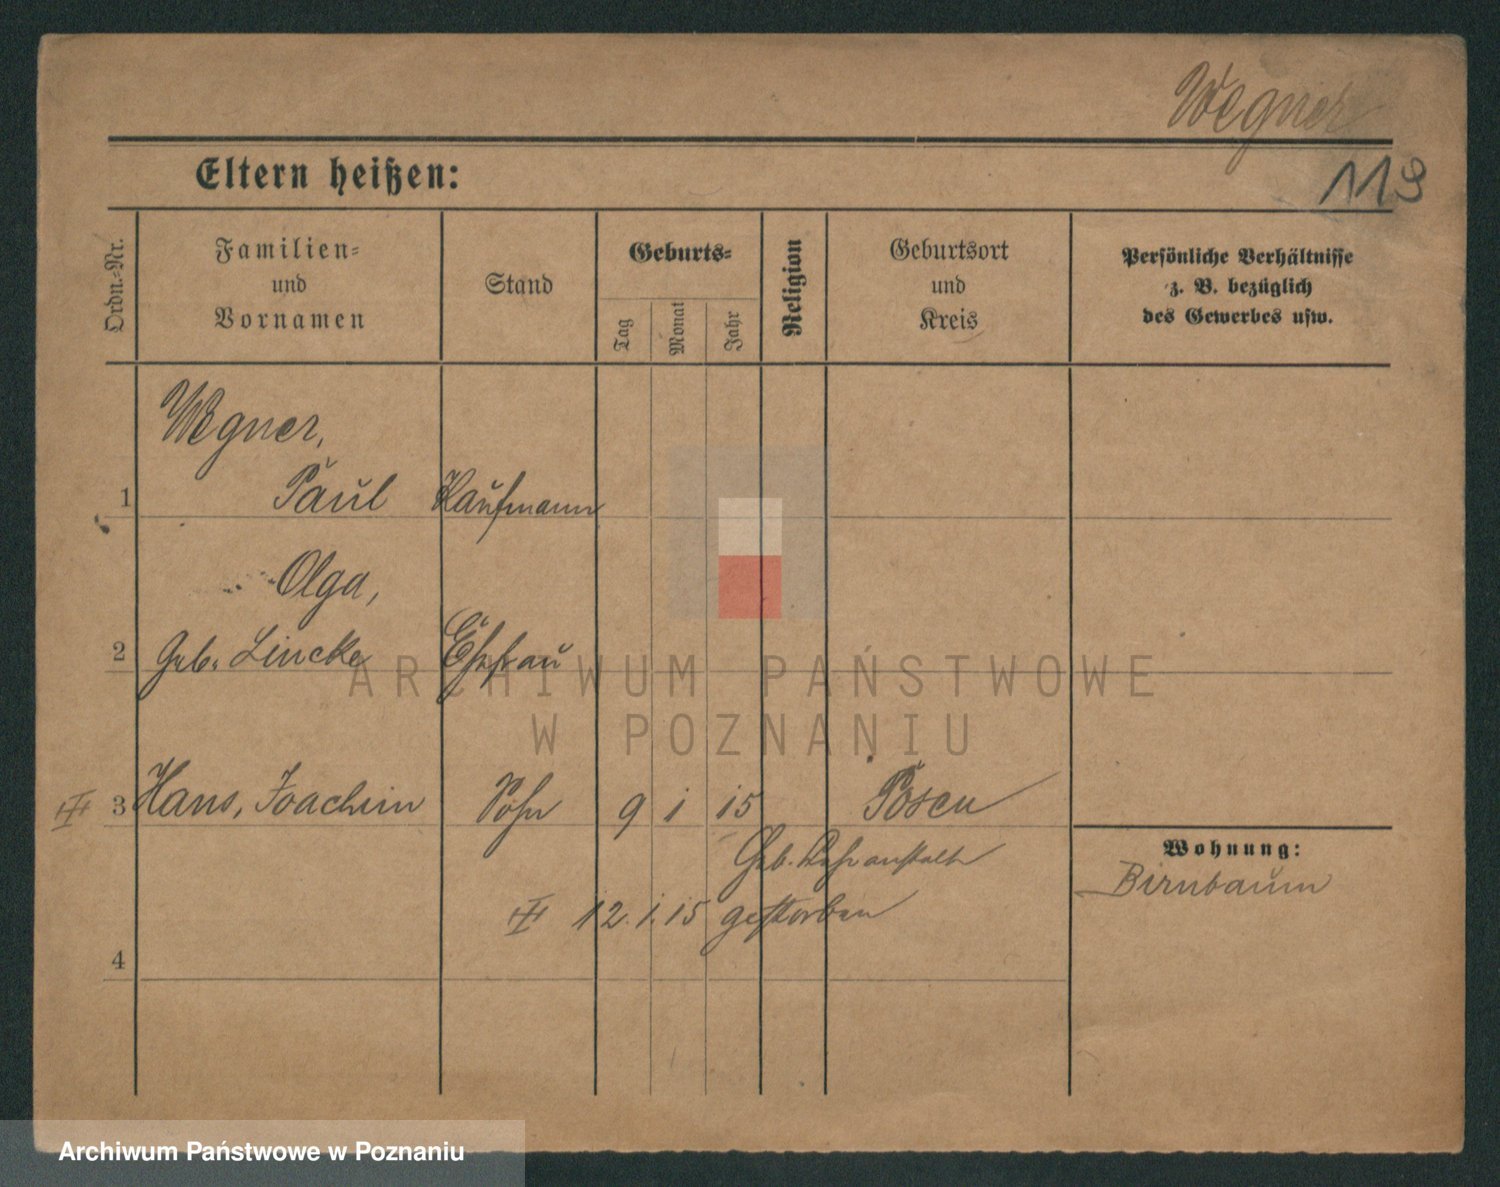 Wegner
119
Eltern heißen:
Ordn.=Nr.
Familien=
und
Vornamen
Stand
Geburts=
Tag
Monat
Jahr
Religion
Geburtsort
und
Kreis
Persönliche Verhältnisse
z. B. bezüglich
des Gewerbes usw.
Wegner,
1 Paul Kaufmann
Olga,
2 Geb. Lincke Ehefrau
3 Hans, Joachim Sohn 9 1 15 Posen
Geb. Lehranstalt
12.1.15 gestorben
4
Wohnung:
Birnbaum
ARCHIWUM PAŃSTWOWE
W POZNANIU
Archiwum Państwowe w Poznaniu